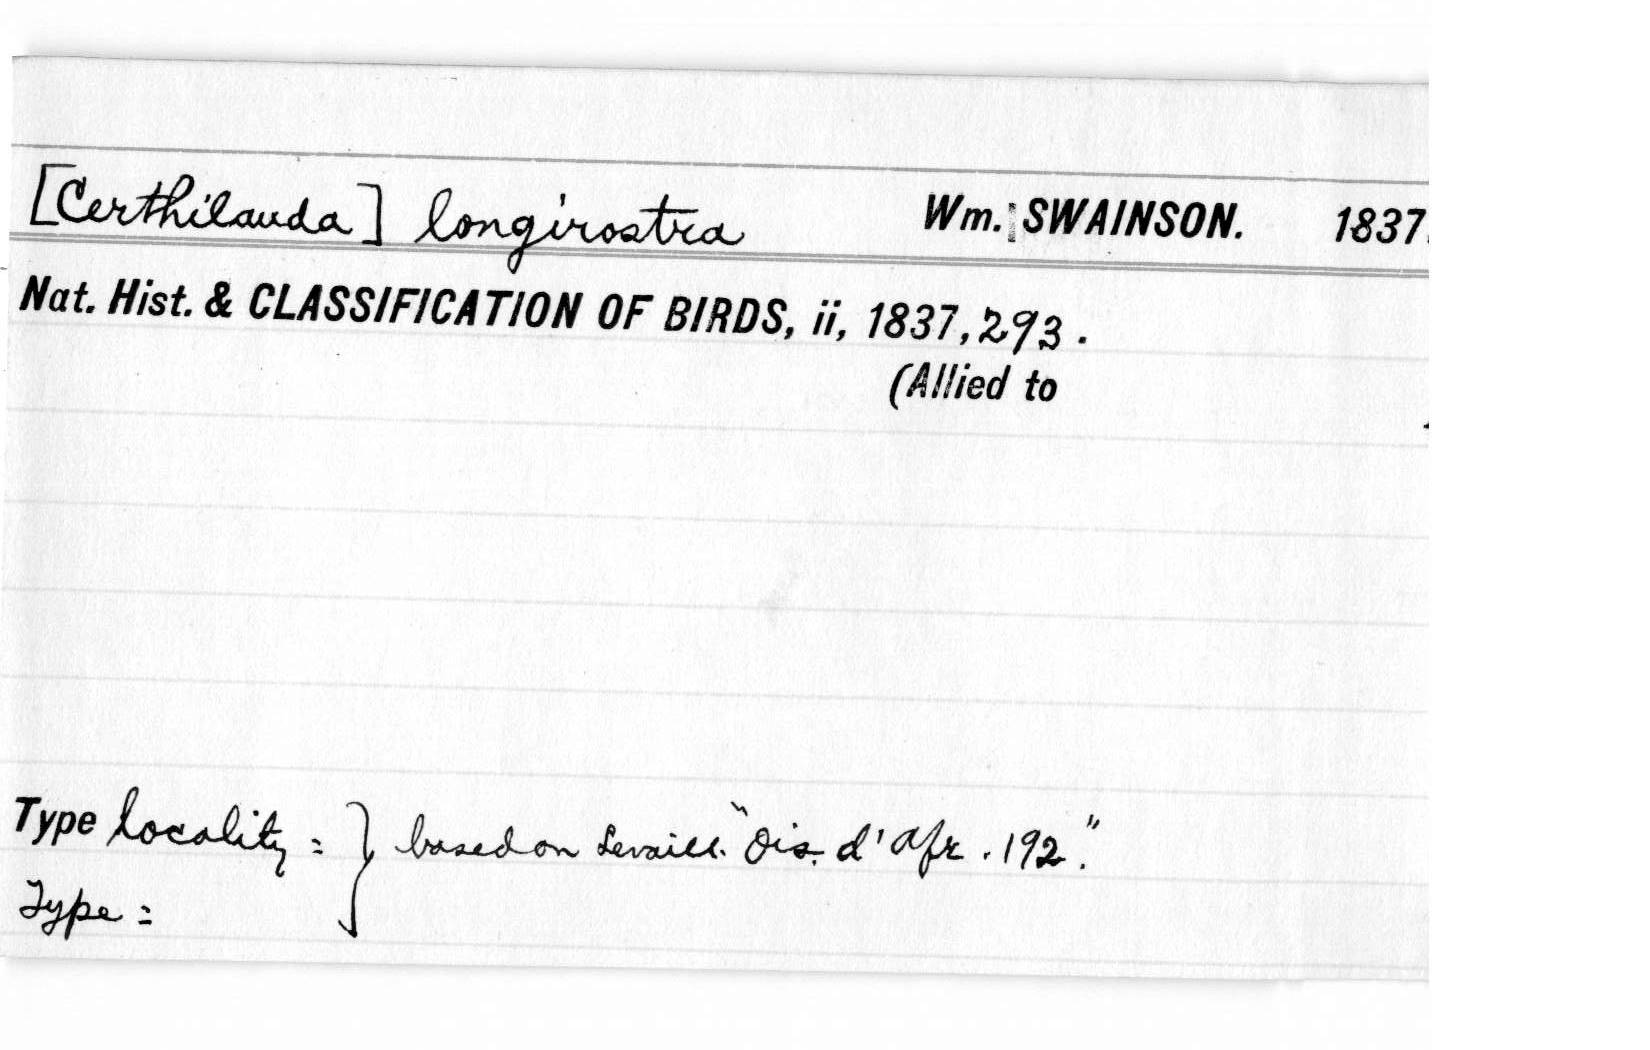 [Certhilauda] longirostra Wm. SWAINSON. 1837.
Nat. Hist. & CLASSIFICATION OF BIRDS, ii, 1837, 293.
(Allied to
Type locality = } based on Levaill. "Ois. d'Afr. 192."
Type =